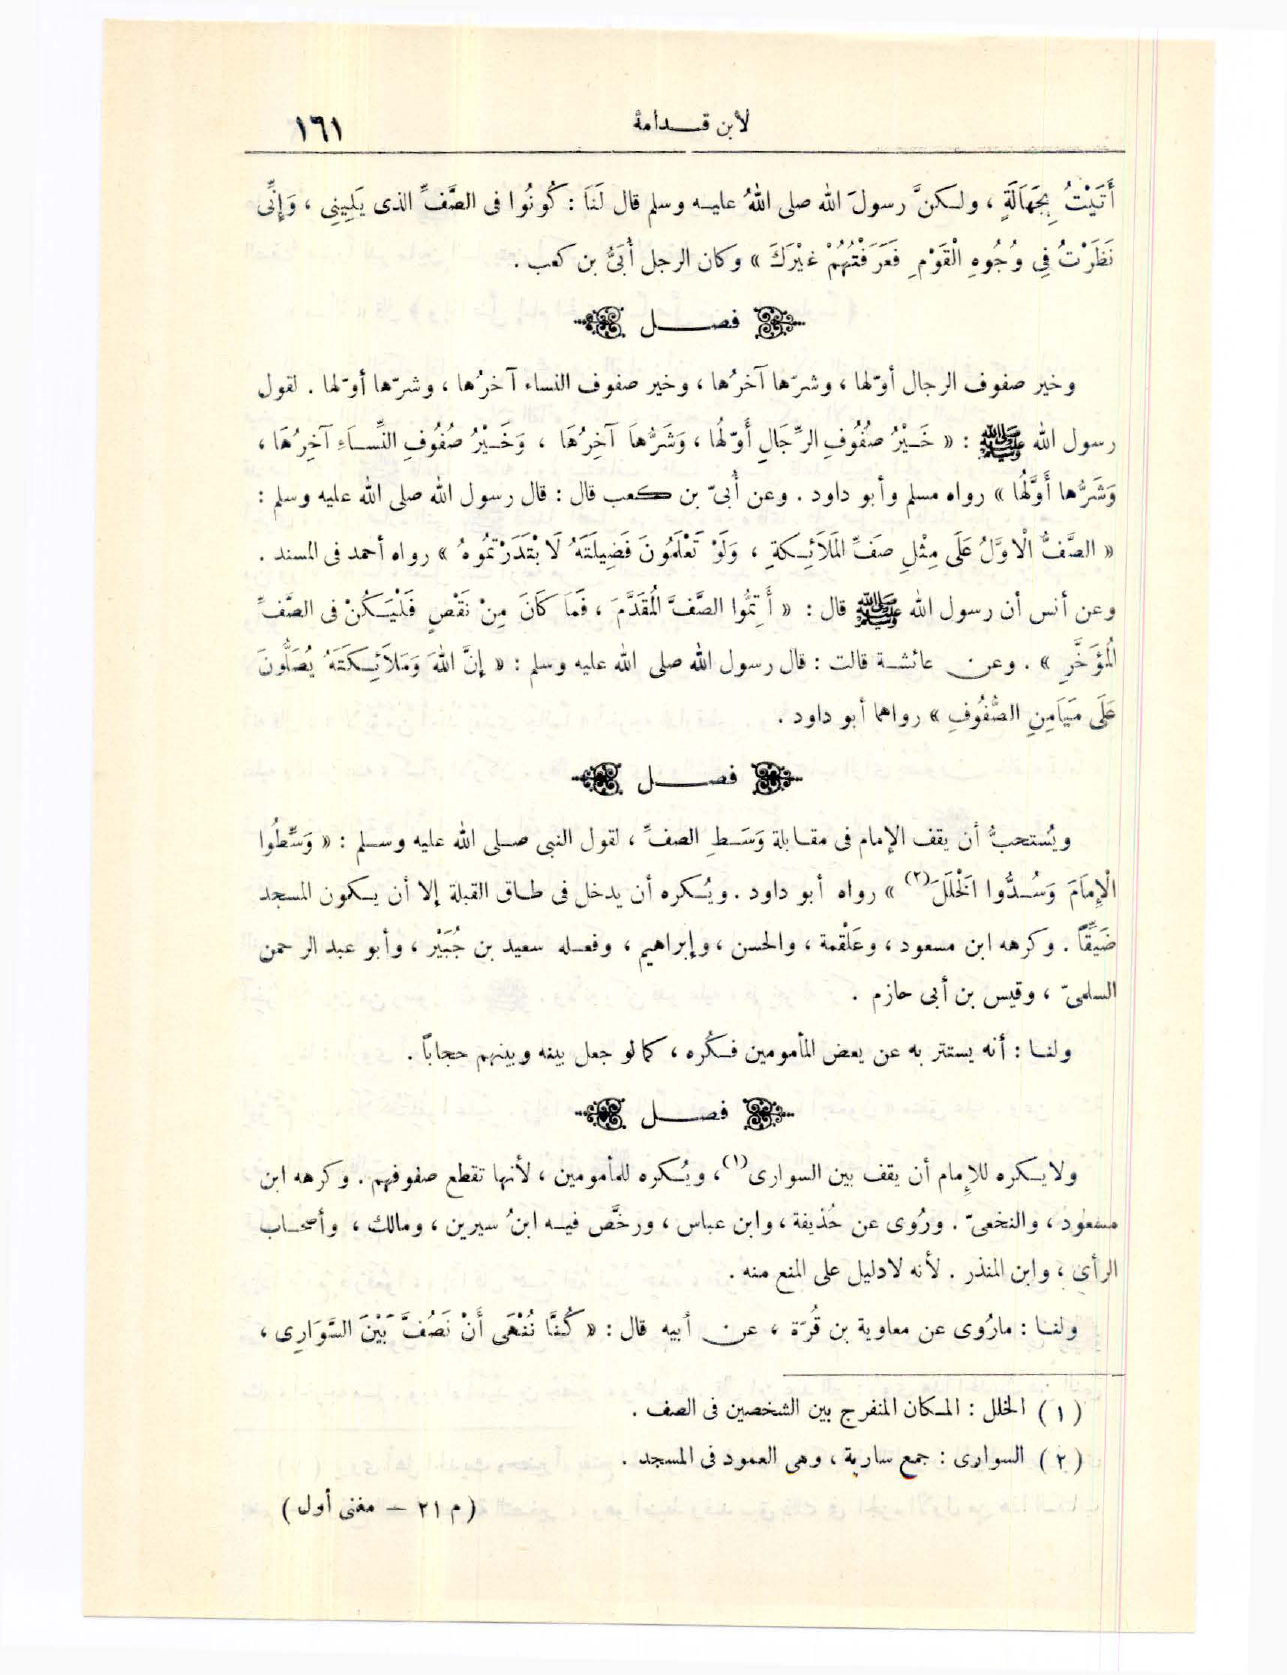 لابن قدامة ١٦١
أَتَيْتُ بِجَهَالَةٍ ، ولكنَّ رسولَ الله صلى اللهُ عليه وسلم قال لَنَا : كُونُوا فى الصَّفِّ الذى يَلِينِى ، وَإِنِّى
نَظَرْتُ فِى وُجُوهِ الْقَوْمِ فَعَرَفْتُهُمْ غَيْرَكَ » وكان الرجل أُبَىُّ بن كعب .
فصل
وخير صفوف الرجال أوّلها ، وشرّها آخرُها ، وخير صفوف النساء آخرُها ، وشرّها أوّلها . لقول
رسول الله ﷺ : « خَيْرُ صُفُوفِ الرِّجَالِ أَوّلُهَا ، وَشَرُّهَا آخِرُهَا ، وَخَيْرُ صُفُوفِ النِّسَاءِ آخِرُهَا ،
وَشَرُّها أَوَّلُهَا » رواه مسلم وأبو داود . وعن أُبىّ بن كعب قال : قال رسول الله صلى الله عليه وسلم :
« الصَّفُّ الْاوَّلُ عَلَى مِثْلِ صَفِّ المَلَائِكةِ ، وَلَوْ تَعْلَمُونَ فَضِيلَتَهُ لَا بْتَدَرْتُمُوهُ » رواه أحمد فى المسند .
وعن أنس أن رسول الله ﷺ قال : « أَتِمُّوا الصَّفَّ الُمقَدَّمَ ، فَمَا كَانَ مِنْ نَقْصٍ فَلْيَكُنْ فى الصَّفِّ
الُمؤَخَّرِ » . وعن عائشة قالت : قال رسول الله صلى الله عليه وسلم : « إِنَّ اللهَ وَمَلَائِكَتَهُ يُصَلُّونَ
عَلَى مَيَامِنِ الصُّفُوفِ » رواهما أبو داود .
فصل
ويُستحبُّ أن يقف الإمام فى مقابلة وَسَطِ الصفِّ ، لقول النبى صلى الله عليه وسلم : « وَسِّطُوا
الْإِمَامَ وَسُدُّوا الَخْلَلَ (٢) » رواه أبو داود . ويُكره أن يدخل فى طاق القبلة إلا أن يكون المسجد
ضَيِّقًا . وكرهه ابن مسعود ، وعَلْقمة ، والحسن ، وإبراهيم ، وفعله سعيد بن جُبَيْر ، وأبو عبد الرحمن
السلمىّ ، وقيس بن أبى حازم .
ولنا : أنه يستتر به عن بعض المأمومين فكُره ، كما لو جعل بينه وبينهم حجابًا .
فصل
ولا يكره للإمام أن يقف بين السوارى (١) ، ويُكره للمأمومين ، لأنها تقطع صفوفهم . وكرهه ابن
مسعود ، والنخعىّ . ورُوى عن حُذيفة ، وابن عباس ، ورخَّص فيه ابنُ سيرين ، ومالك ، وأصحاب
الرأى ، وابن المنذر . لأنه لا دليل على المنع منه .
ولنا : مارُوى عن معاوية بن قُرّة ، عن أبيه قال : « كُنَّا نُنْهَى أَنْ نَصُفَّ بَيْنَ السَّوَارِى ،
( ١ ) الخلل : المكان المنفرج بين الشخصين فى الصف .
( ٢ ) السوارى : جمع سارية ، وهى العمود فى المسجد .
( م ٢١ – مغنى أول )